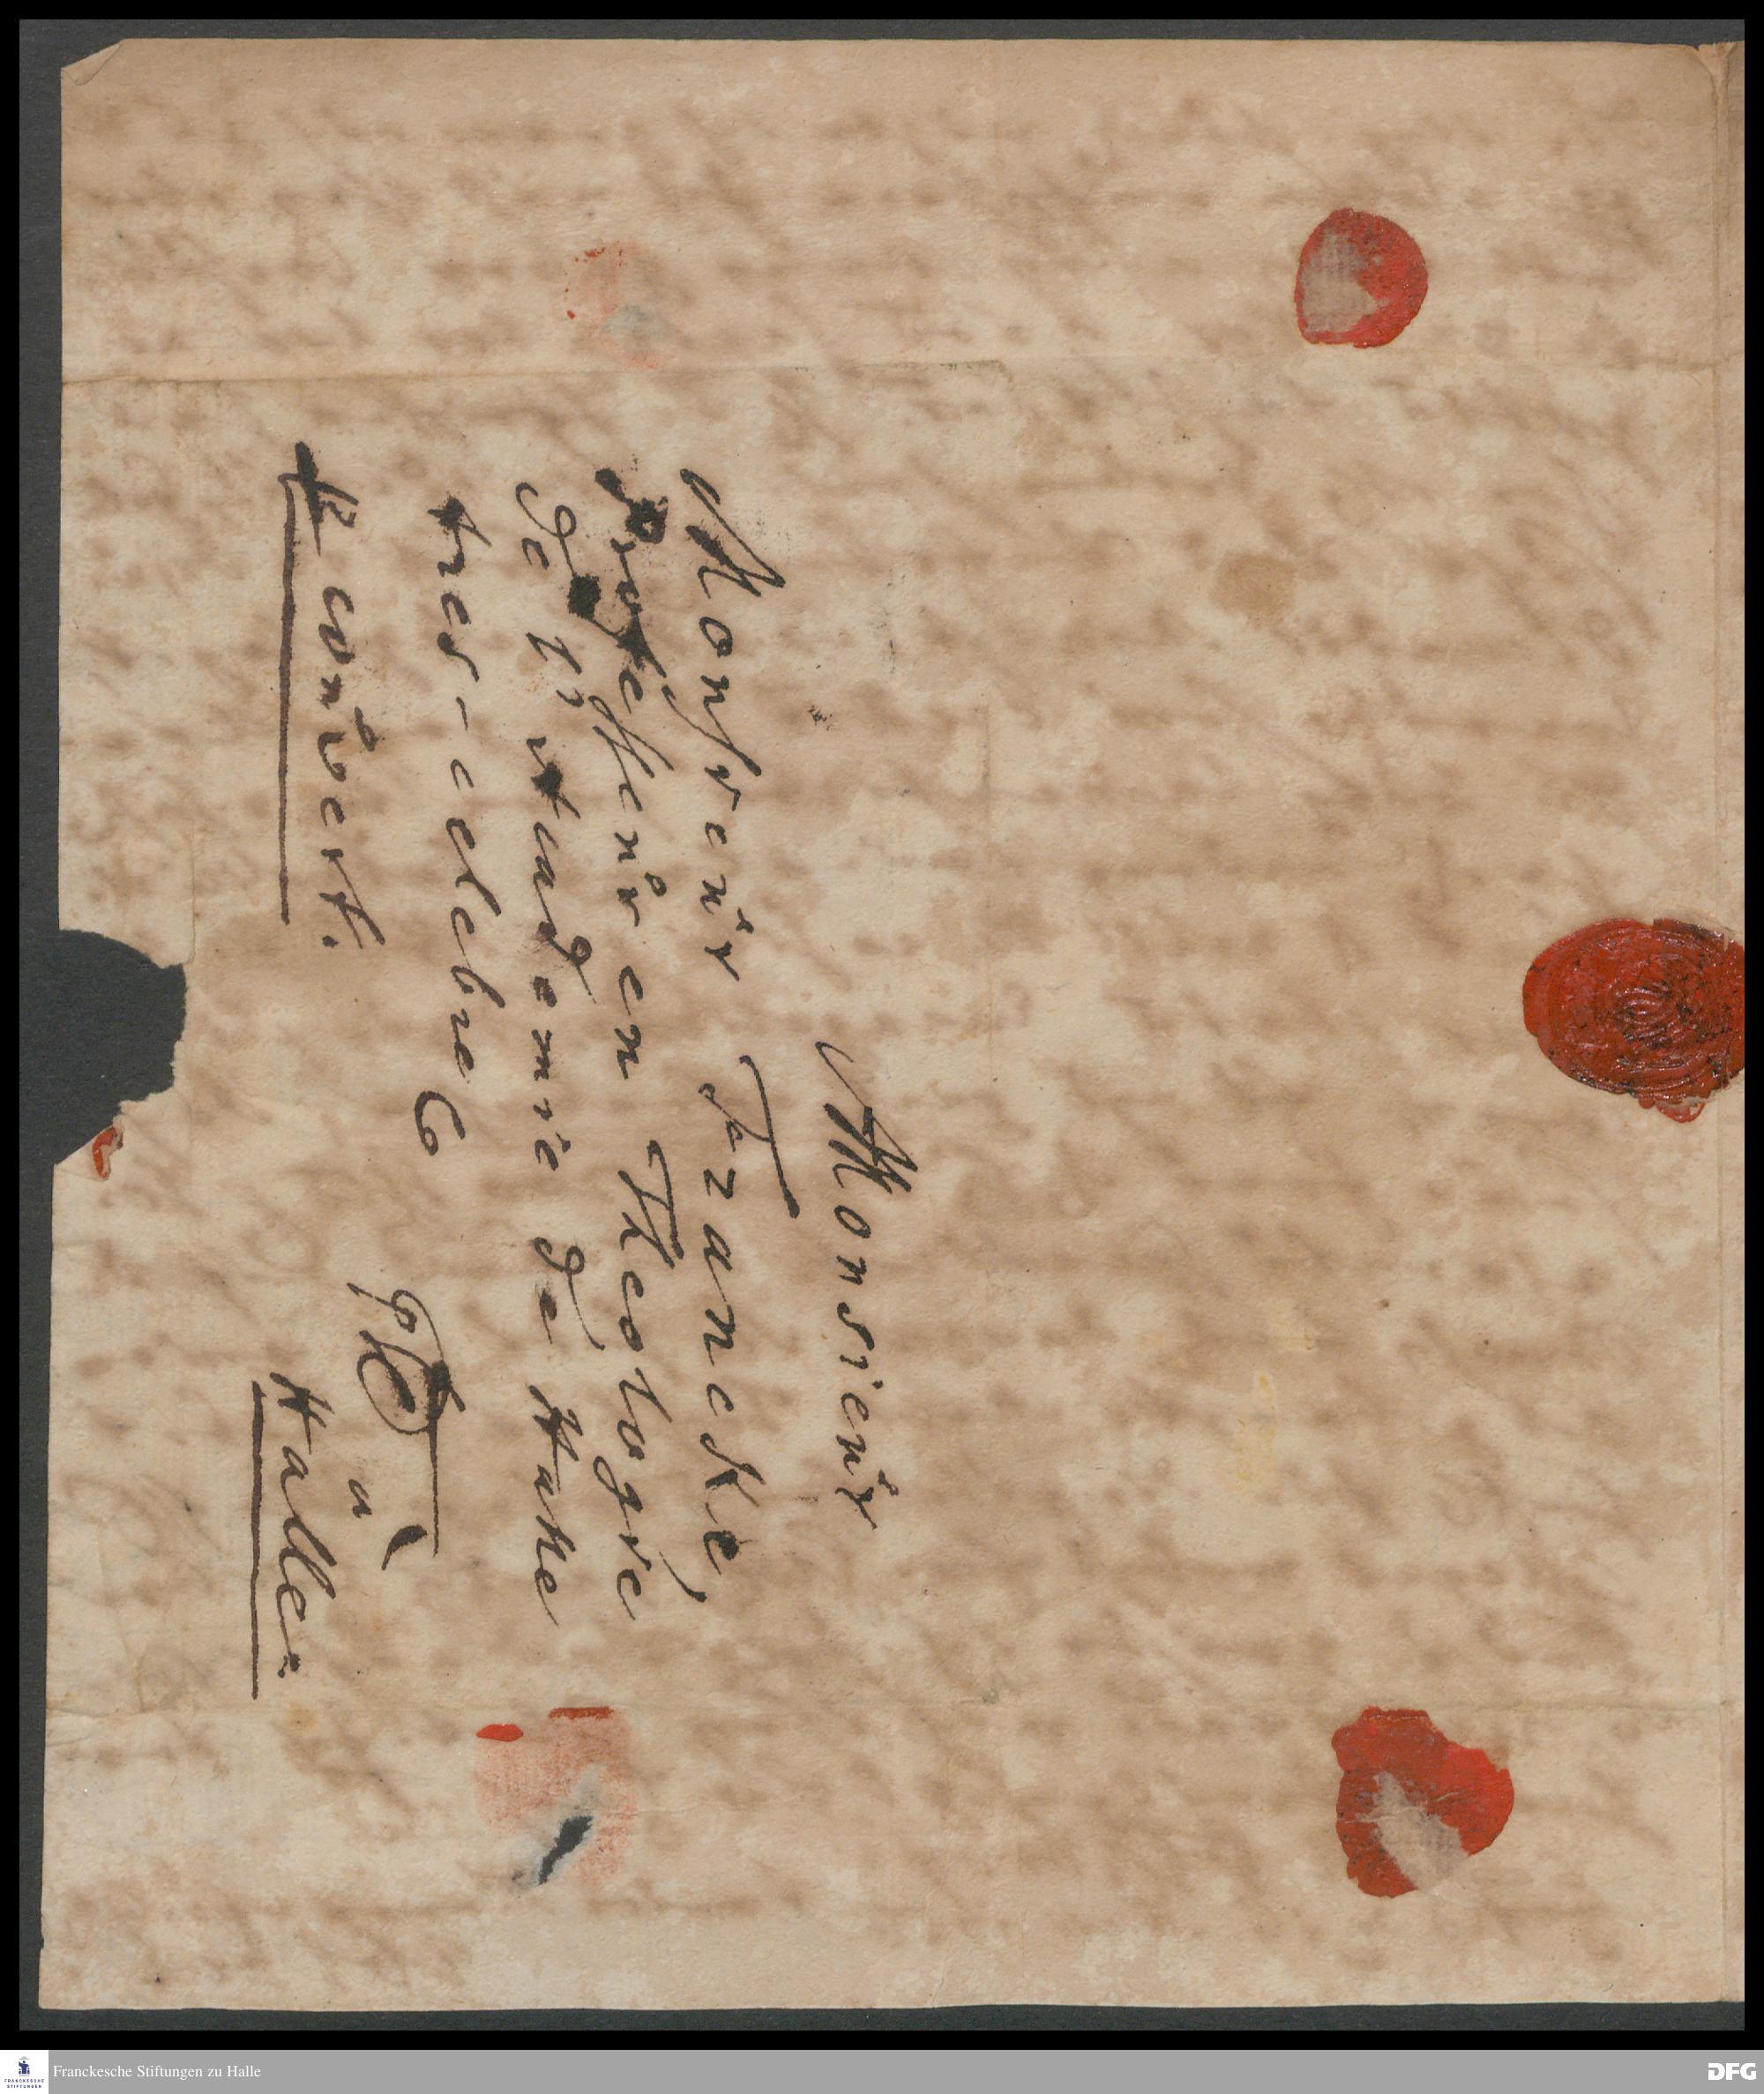 Monsieur
Monsieur Francke,
Professeur en Theologie
de l'Academie de Halle
tres-celebre
à
couvert.
Halle.
Franckesche Stiftungen zu Halle
FRANCKESCHE
STIFTUNGEN
DFG